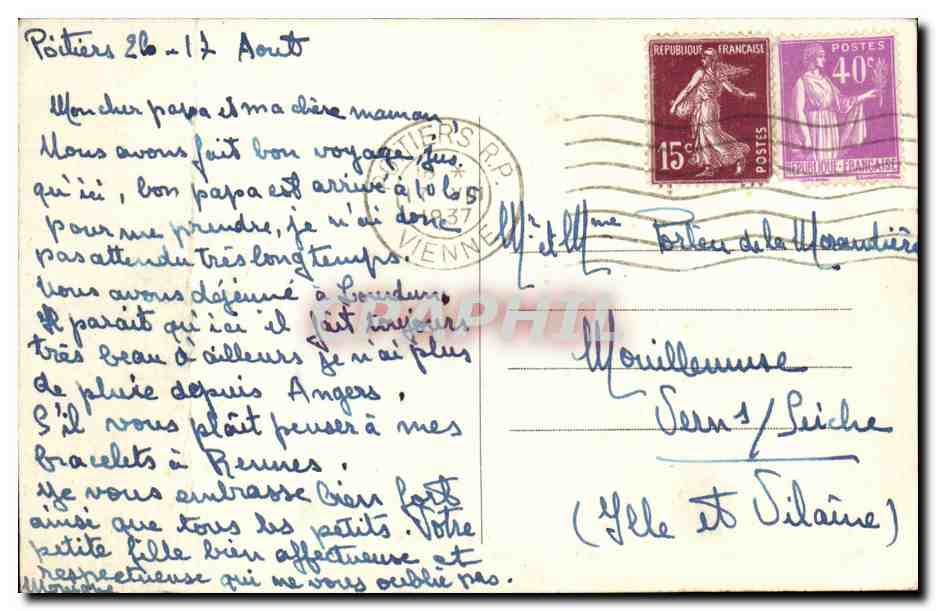 Poitiers 26-17 Août
Mon cher papa et ma chère maman,
Nous avons fait bon voyage, jus.
qu'ici, bon papa est arrivé à 10h 5
pour me prendre, je n'ai donc
pas attendu très longtemps.
Nous avons déjeuné à Loudun.
Il parait qu'ici il fait toujours
très beau d'ailleurs je n'ai plus
de pluie depuis Angers.
S'il vous plâit penser à mes
bracelets à Rennes.
Je vous embrasse bien fort
ainsi que tous les petits. Votre
petite fille bien affectueuse et
respectueuse qui ne vous oublie pas.
Monique
POITIERS R.P.
1937
VIENNE
REPUBLIQUE FRANÇAISE
15c
POSTES
POSTES
40c
REPUBLIQUE FRANÇAISE
Mr et Mme Porteu de la Morandière
Mouillemuse
Vern s/ Seiche
(Ille et Vilaine)
CPAPHIL